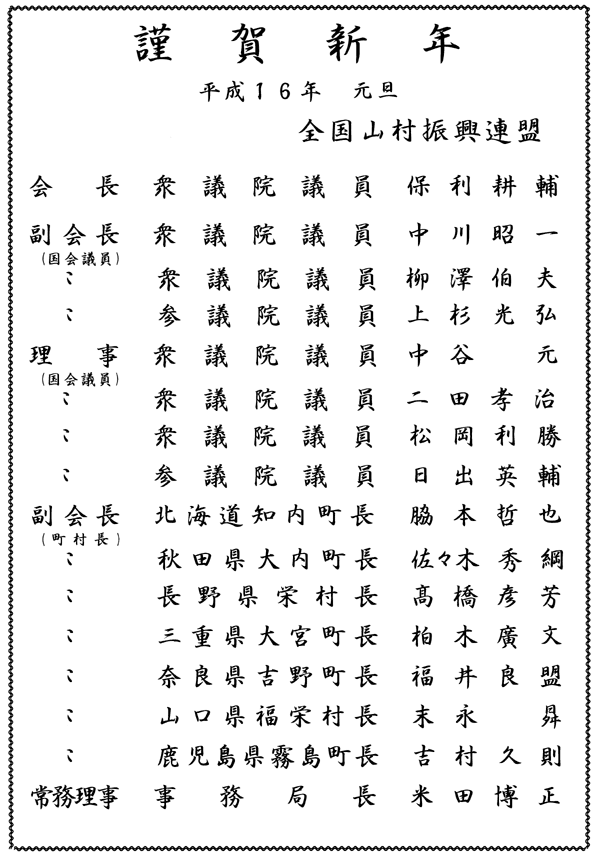 謹賀新年
平成１６年 元旦
全国山村振興連盟
会長 衆議院議員 保利耕輔
副会長 衆議院議員 中川昭一
(国会議員)
〃 衆議院議員 柳澤伯夫
〃 参議院議員 上杉光弘
理事 衆議院議員 中谷元
(国会議員)
〃 衆議院議員 二田孝治
〃 衆議院議員 松岡利勝
〃 参議院議員 日出英輔
副会長 北海道知内町長 脇本哲也
(町村長)
〃 秋田県大内町長 佐々木秀綱
〃 長野県栄村長 髙橋彦芳
〃 三重県大宮町長 柏木廣文
〃 奈良県吉野町長 福井良盟
〃 山口県福栄村長 末永昇
〃 鹿児島県霧島町長 吉村久則
常務理事 事務局長 米田博正